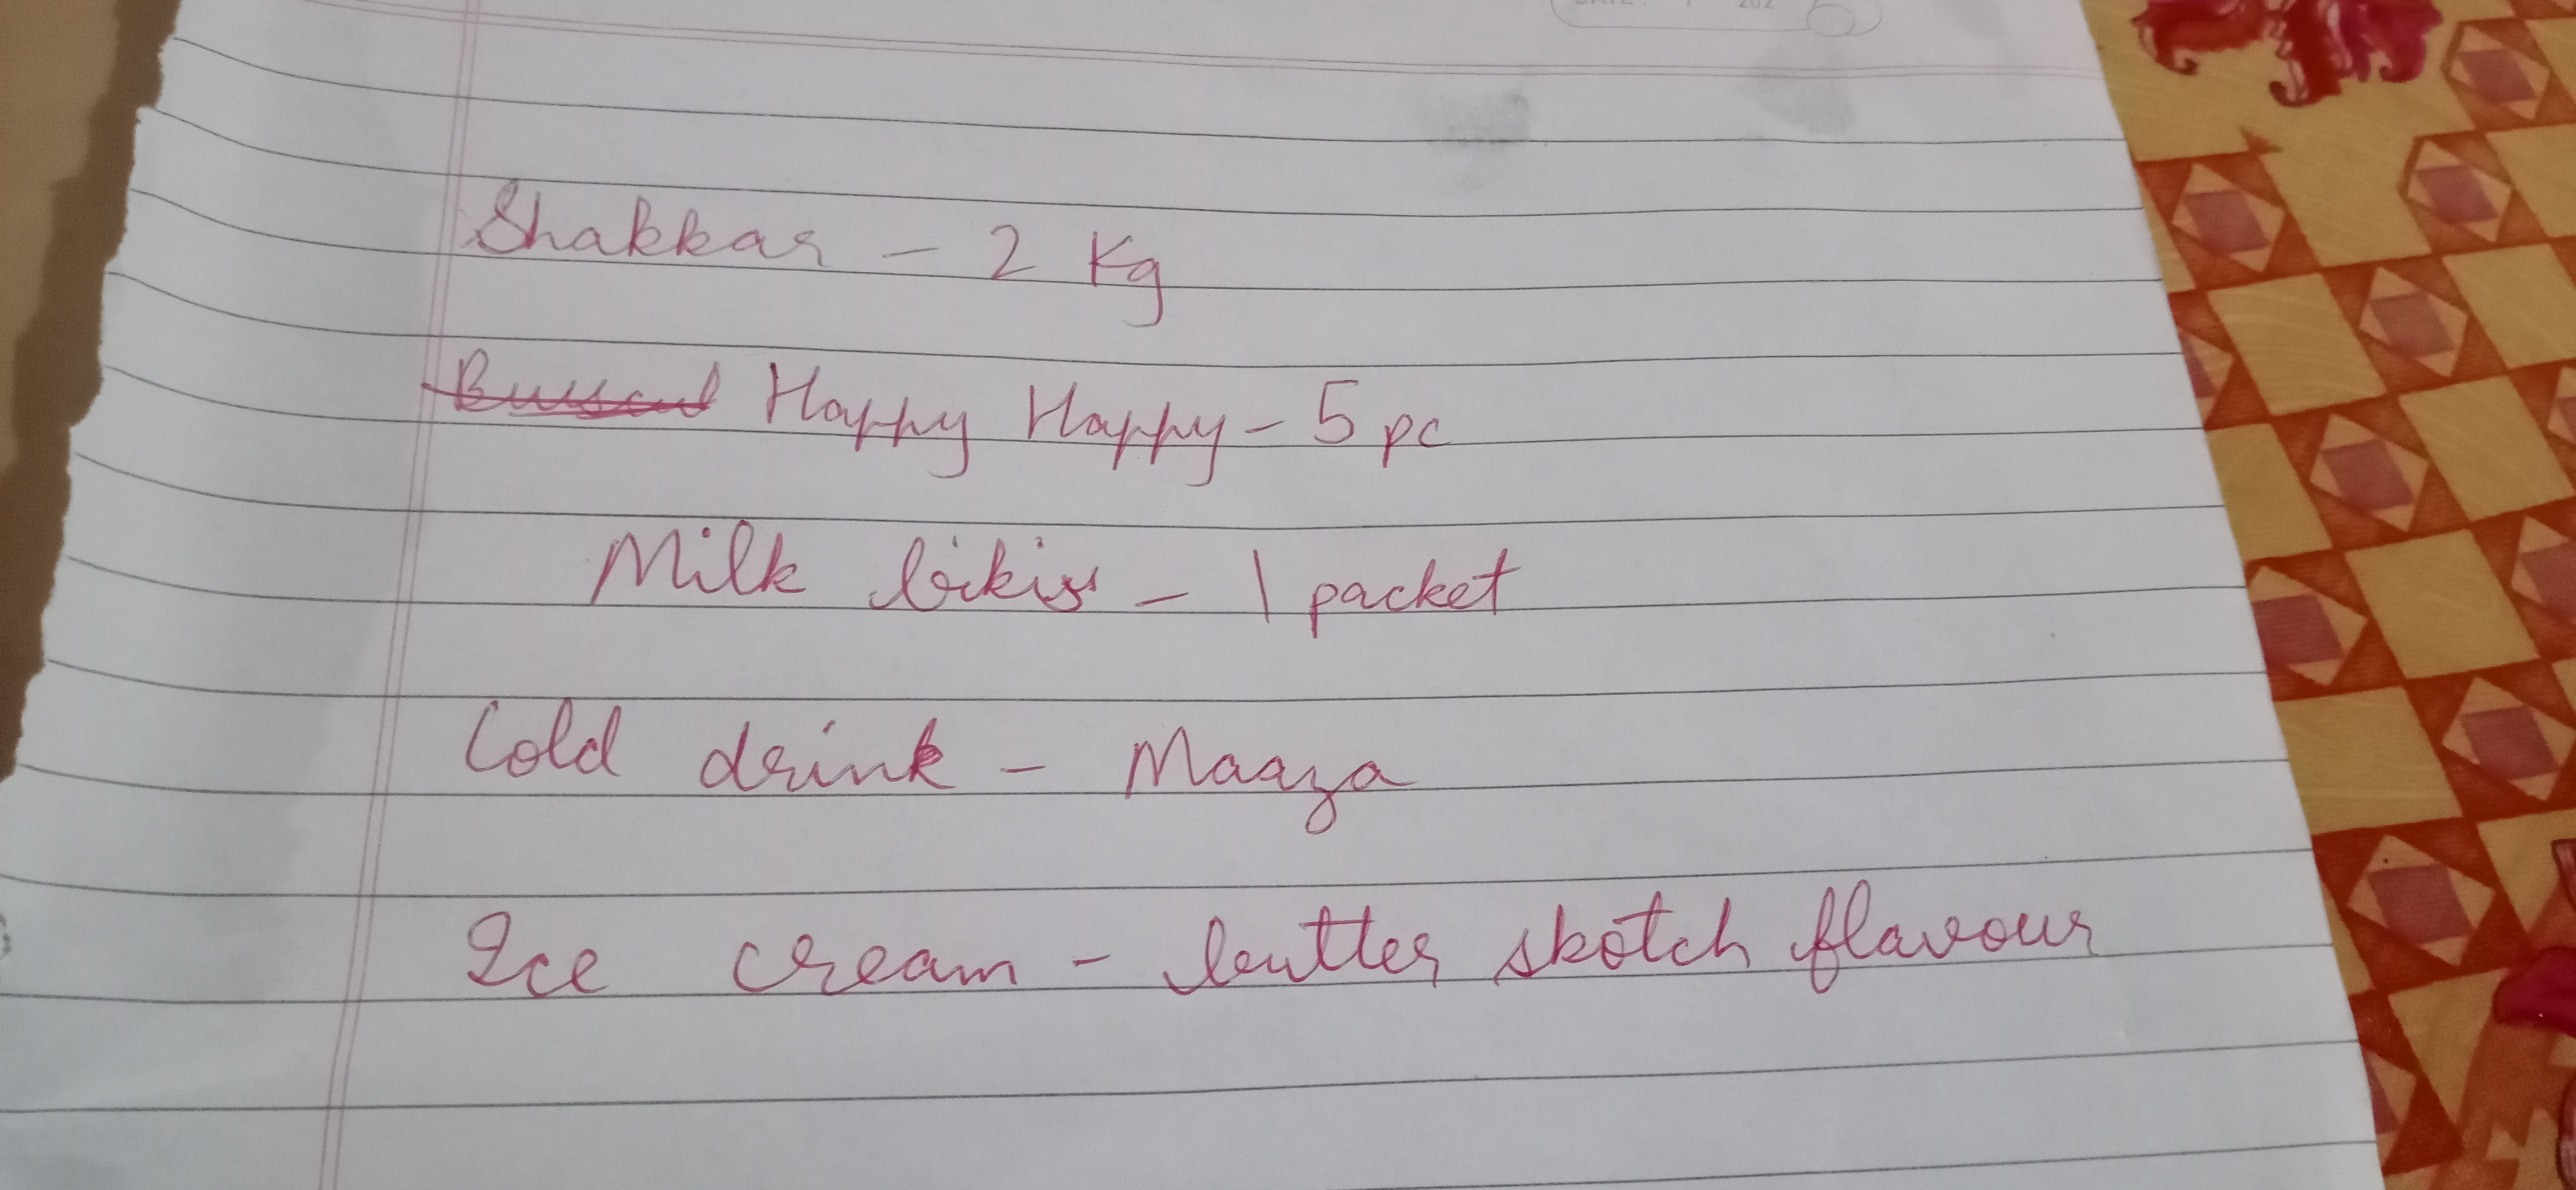 Shakkar - 2 Kg
Happy Happy - 5 pc
Milk bikis - 1 packet
Cold drink - Maaza
Ice cream - butter skotch flavour